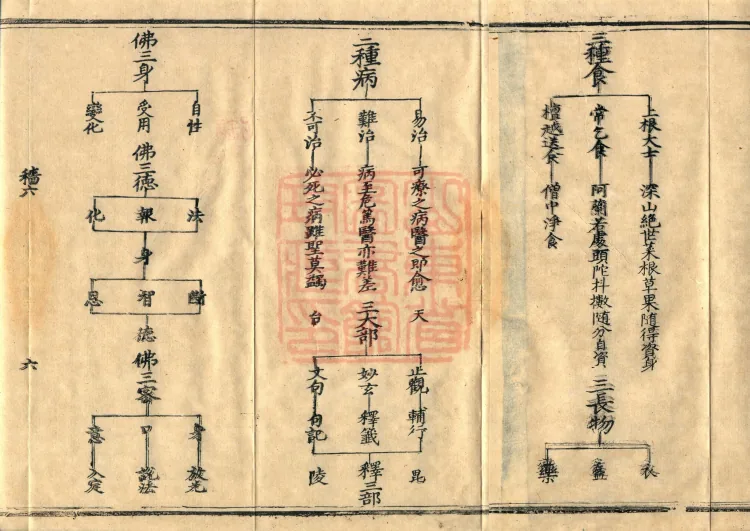 三種食
上根大士 深山絕世菜根草果隨得資身
常乞食 阿蘭若處頭陀抖擻隨分自資
檀越送食 僧中淨食
三長物
衣
盋
藥
三種病
易治 可療之病醫之即愈
難治 病至危篤醫亦難差
不可治 必死之病雖聖莫蠲
天台三大部
止觀 輔行
妙玄 釋籤
文句 句記
毘陵釋三部
佛三身
自性
受用
變化
佛三德
法
報
化
身
斷
智
恩
德
佛三密
身 放光
口 說法
意 入定
穡六
六